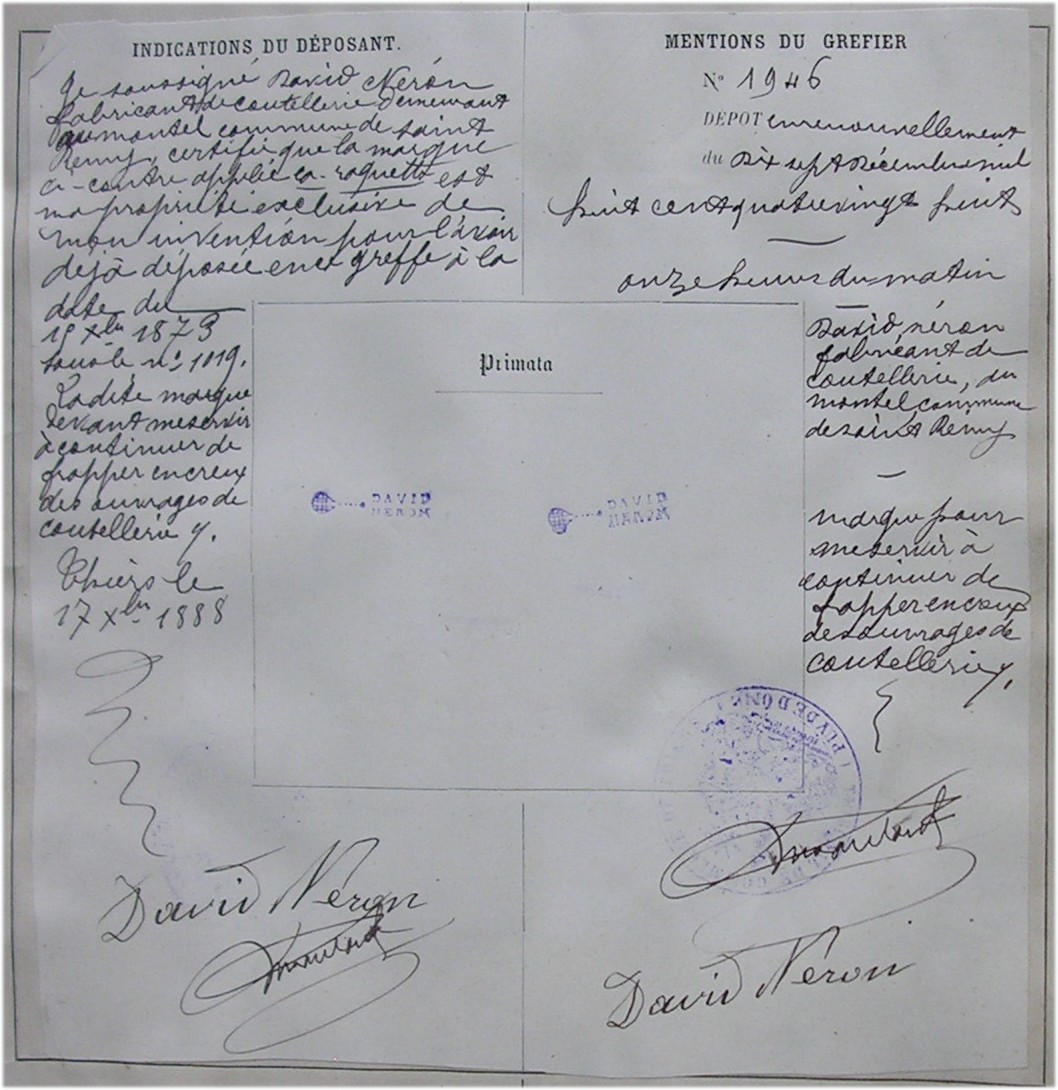 INDICATIONS DU DÉPOSANT.
Je soussigné David Néron
fabricant de coutellerie demeurant
au montel commune de saint
Remy, certifie que la marque
ci-contre applié la raquette est
ma propriété exclusive de
mon invention pour l'avoir
déjà déposée en ce greffe à la
date du
15 Xbre 1873
sous le n° 1019.
Ladite marque
devant me servir
à continuer de
frapper en creux
des ouvrages de
coutellerie
Thiers le
17 Xbre 1888
David Néron
MENTIONS DU GREFIER
N° 1946
DÉPOT en renouvellement
du Dix sept Décembre mil
huit cent quatre vingt huit
onze heures du matin
David, néron
fabricant de
coutellerie, du
montel commune
de saint Rémy
marque pour
me servir à
continuer de
frapper en creux
des ouvrages de
coutellerie
David Néron
Primata
DAVID
NERON
DAVID
NERON
PUY DE DÔME